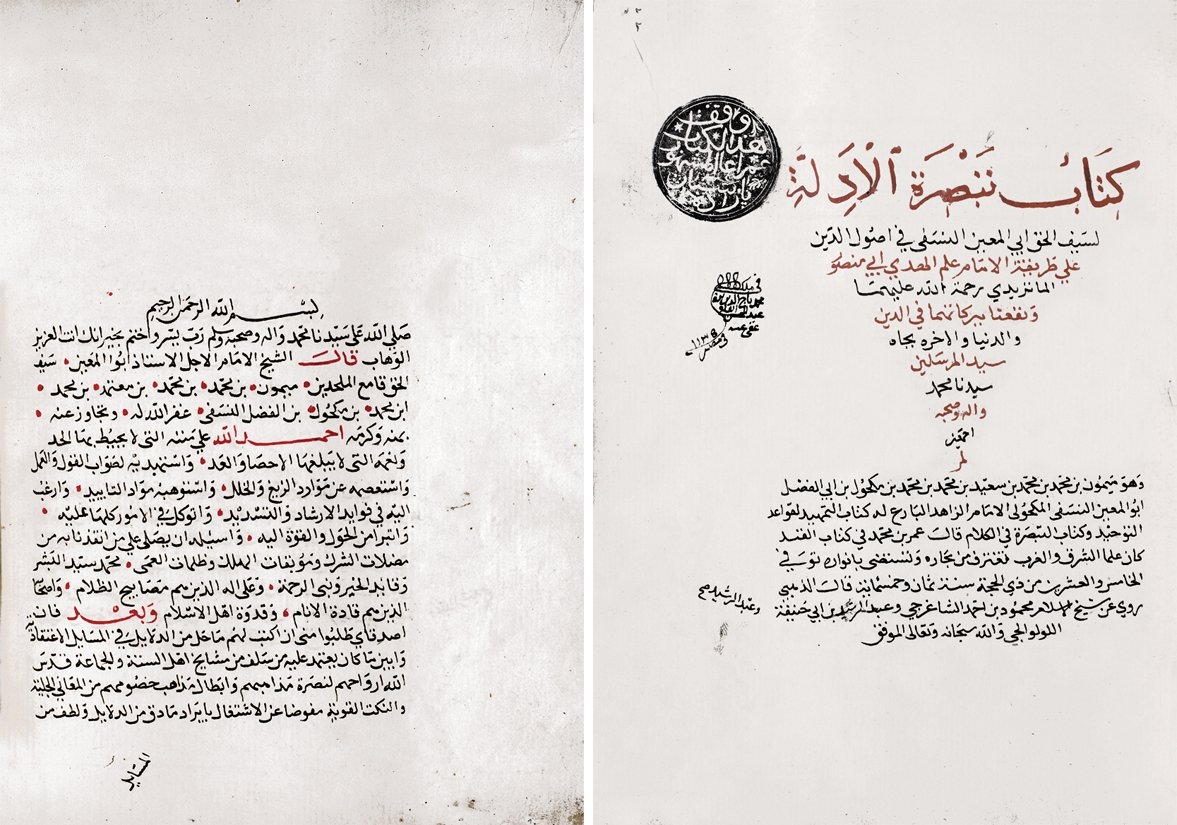 كتاب تبصرة الادلة
لسيف الحق ابي المعين النسفي في اصول الدين
علي طريقة الامام علم الهدي ابي منصور
الماتريدي رحمة الله عليهما
ونفعنا ببركاتهما في الدين
والدنيا والاخره بجاه
سيد المرسلين
سيدنا محمد
واله وصحبه
اجمعين
وقف
هذا الكتاب
١١٣٥
وهو ميمون بن محمد بن محمد بن سعيد بن محمد بن محمد بن مكحول بن ابي الفضل
ابو المعين النسفي المكحولي الامام الزاهد البارع له كتاب التمهيد لقواعد
التوحيد وكتاب التبصرة في الكلام قالت عمر بن محمد في كتاب القند
كان علما الشرق والغرب تغترف من بحاره وتستضى بانواره توفي في
الخامس والعشرين من ذي الحجة سنة ثمان وخمسمائة قالت الذهبي
روي عن شيخ الاسلام محمود بن احمد الشاغرجي وعبد الرشيد بن ابي حنيفة
اللولوالجي والله سبحانه وتعالى الموفق
وعبد الرشيد صح
بسم الله الرحمن الرحيم
صلي الله على سيدنا محمد واله وصحبه وسلم رب يسر واختم بخير انك انت العزيز
الوهاب قالت الشيخ الامام الاجل الاستاذ ابوا المعين سيف
الحق قامع الملحدين ميمون بن محمد بن محمد بن معتمد بن محمد
ابن محمد بن مكحول بن الفضل النسفى غفر الله له وتجاوز عنه
بمنه وكرمه احمد الله علي مننه التى لا يحيط بها الحد
ونعمه التى لا يبلغها الاحصا والعد واستهديه لصواب القول والعمل
واستعصمه عن موارد الزيغ والخلل واستوهبه مواد التاييد وارغب
اليه في فوايد الارشاد والتسديد واتوكل في الامور كلها عليه
واتبرا من الحول والقوة اليه واسيله ان يصلى علي من انقذنا به من
مضلات الشرك وموبقات المهلك وظلمات العمى محمد سيد البشر
وقايد الخير ونبى الرحمة وعلى اله الذين هم مصابيح الظلام واصحابه
الذين هم قادة الانام وقدوة اهل الاسلام وبعد فان
اصدقاي طلبوا منى ان اكتب لهم ما جل من الدلايل في المسايل الاعتقادية
وابين ما كان يعتمد عليه من سلف من مشايخ اهل السنة والجماعة قدس
الله ارواحهم لنصرة مذاهبهم وابطال مذاهب خصومهم من المعاني الجلية
والنكت القوية مفوضا عن الاشتغال بايراد ما دق من الدلايل ولطف من
المسايل